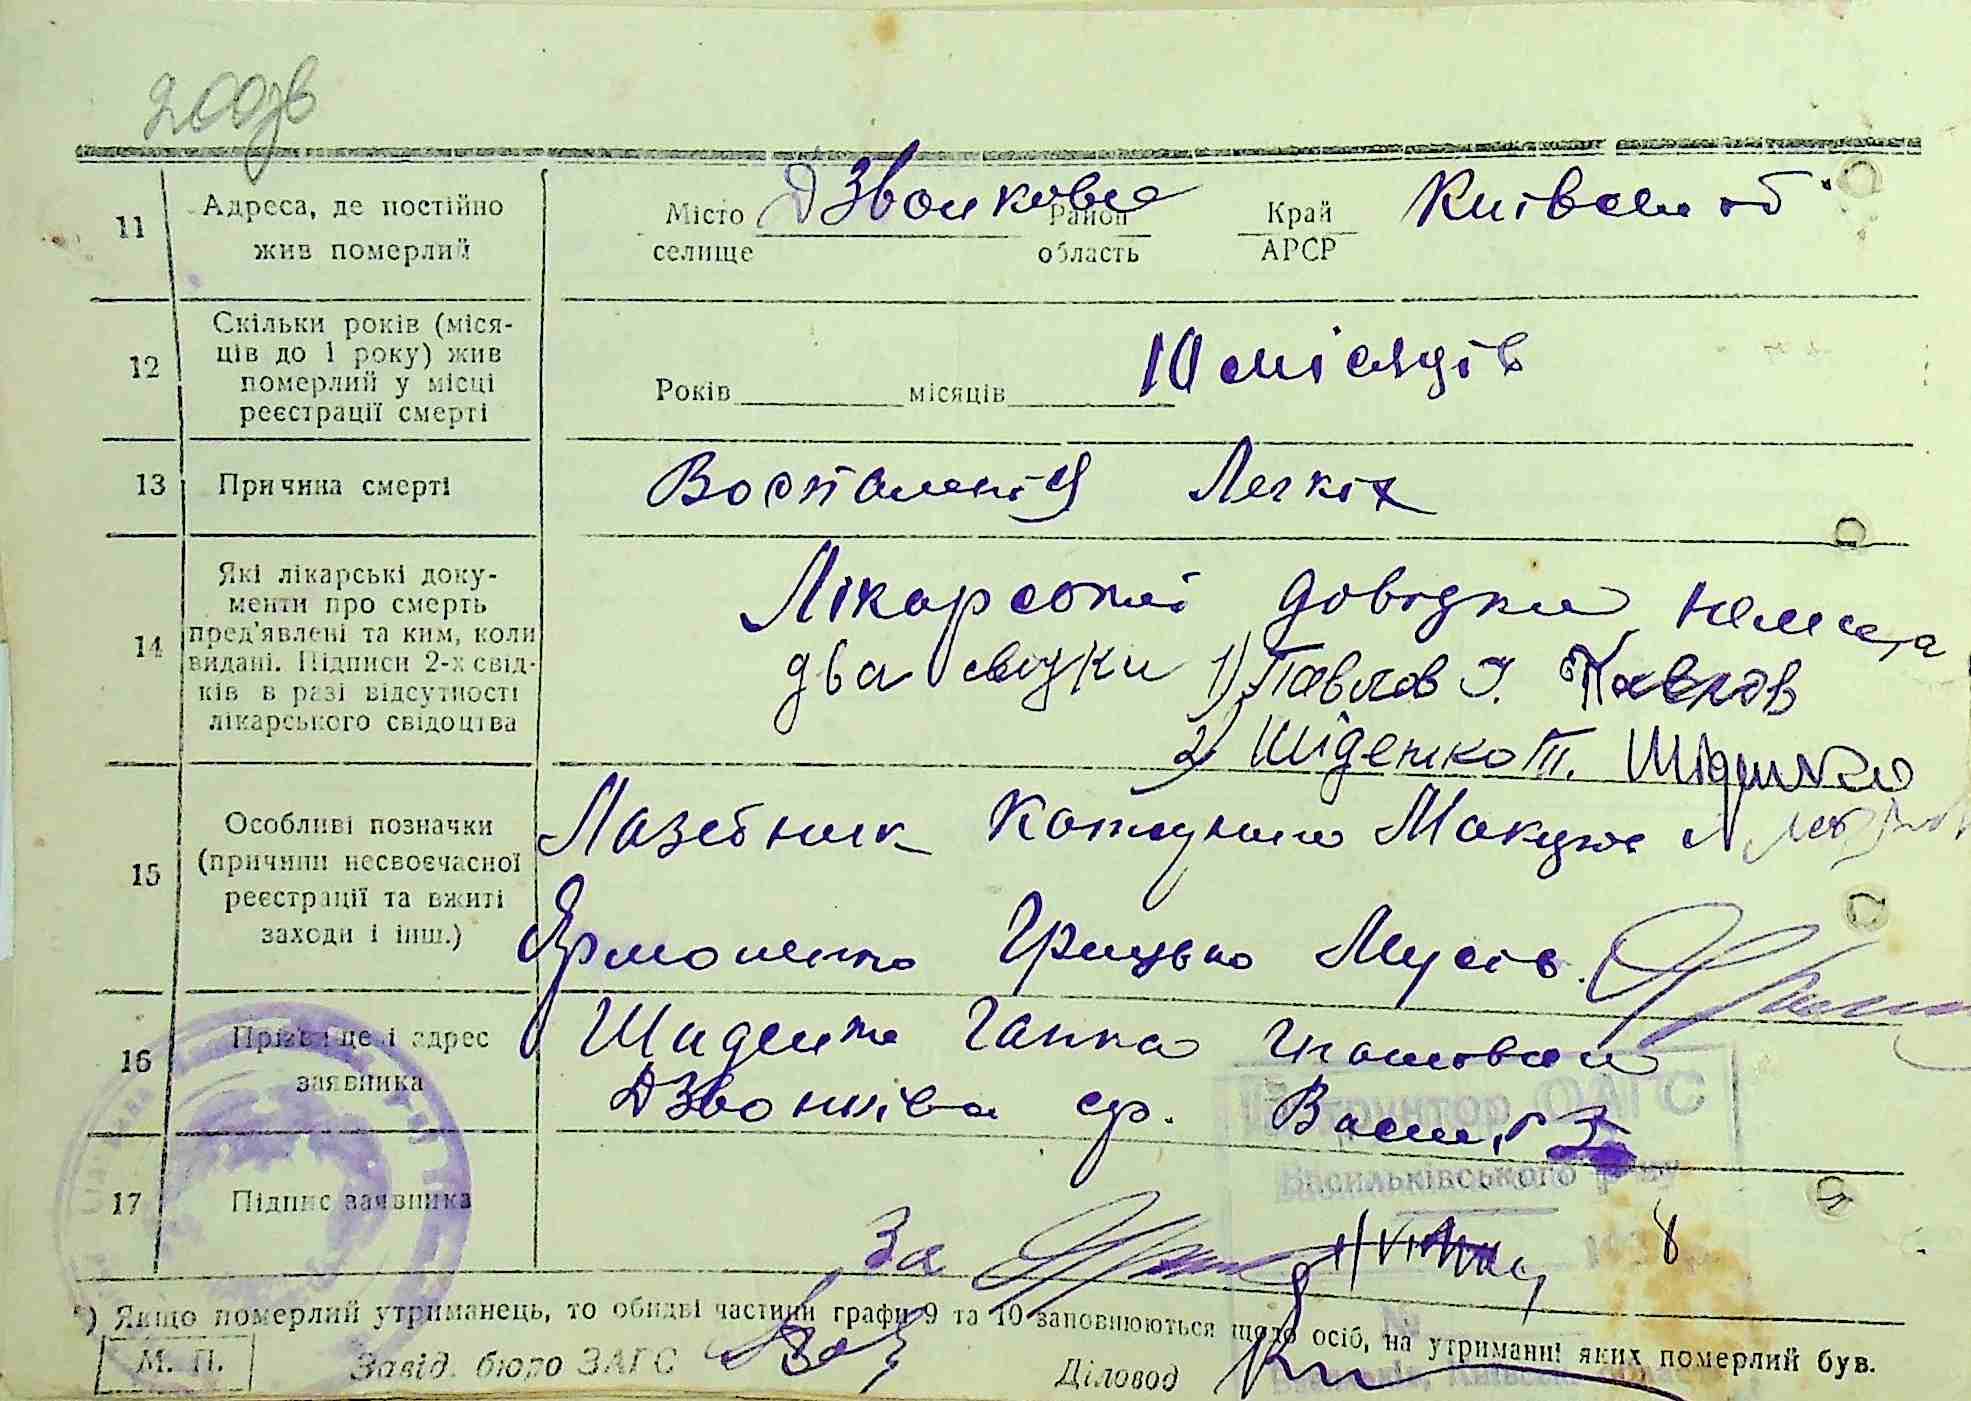 11 Адреса, де постійно жив померлий
Місто селище Дзвонкове Район область Край АРСР Київськ об
12 Скільки років (міся-
ців до 1 року) жив
померлий у місці
реєстрації смерті
Років місяців 10 місяців
13 Причина смерті Воспаленія Легкіх
14 Які лікарські доку-
менти про смерть
пред'явлені та ким, коли
видані. Підписи 2-х свід-
ків в разі відсутності
лікарського свідоцтва
Лікарської довідки нема
два свідки 1) Павлов І. Павлов
2) Шіденко П. Шіденко
15 Особливі позначки
(причини несвоєчасної
реєстрації та вжиті
заходи і інш.)
Лазебник
Грицько Мусів.
16 Прізвище і адрес
заявника
Шиденко Ганна
Дзвонківа ср. Васил. р
Інструктор ОАГС
Васильківського р-ну
17 Підпис заявника
За
8
*) Якщо померлий утриманець, то обидві частини графи 9 та 10 заповнюються щодо осіб, на утриманні яких померлий був.
М. П. Завід. бюро ЗАГС Діловод